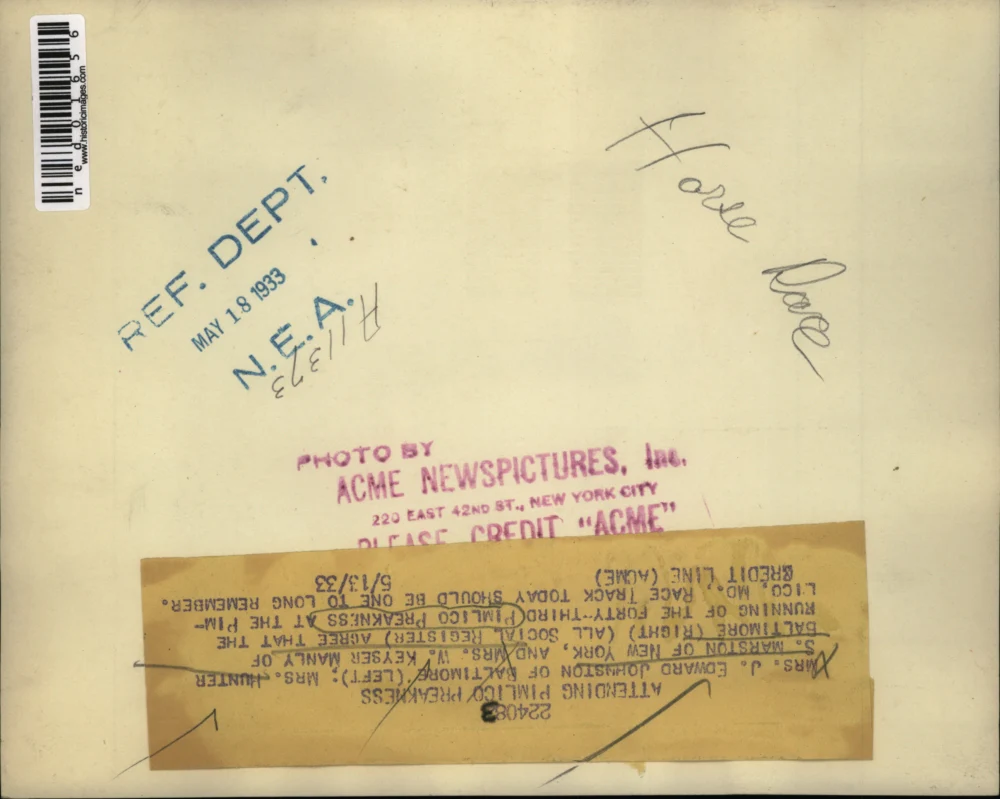 ned01656
www.historicimages.com
Horse Race
REF. DEPT.
MAY 18 1933
N. E. A.
A11373
PHOTO BY
ACME NEWSPICTURES, Inc.
220 EAST 42ND ST., NEW YORK CITY
PLEASE CREDIT "ACME"
224083
ATTENDING PIMLICO PREAKNESS
MRS. J. EDWARD JOHNSTON OF BALTIMORE, (LEFT); MRS. HUNTER
S. MARSTON OF NEW YORK, AND MRS. W. KEYSER MANLY OF
BALTIMORE (RIGHT) (ALL SOCIAL REGISTER) AGREE THAT THE
RUNNING OF THE FORTY-THIRD PIMLICO PREAKNESS AT THE PIM-
LICO, MD., RACE TRACK TODAY SHOULD BE ONE TO LONG REMEMBER.
CREDIT LINE (ACME) 5/13/33